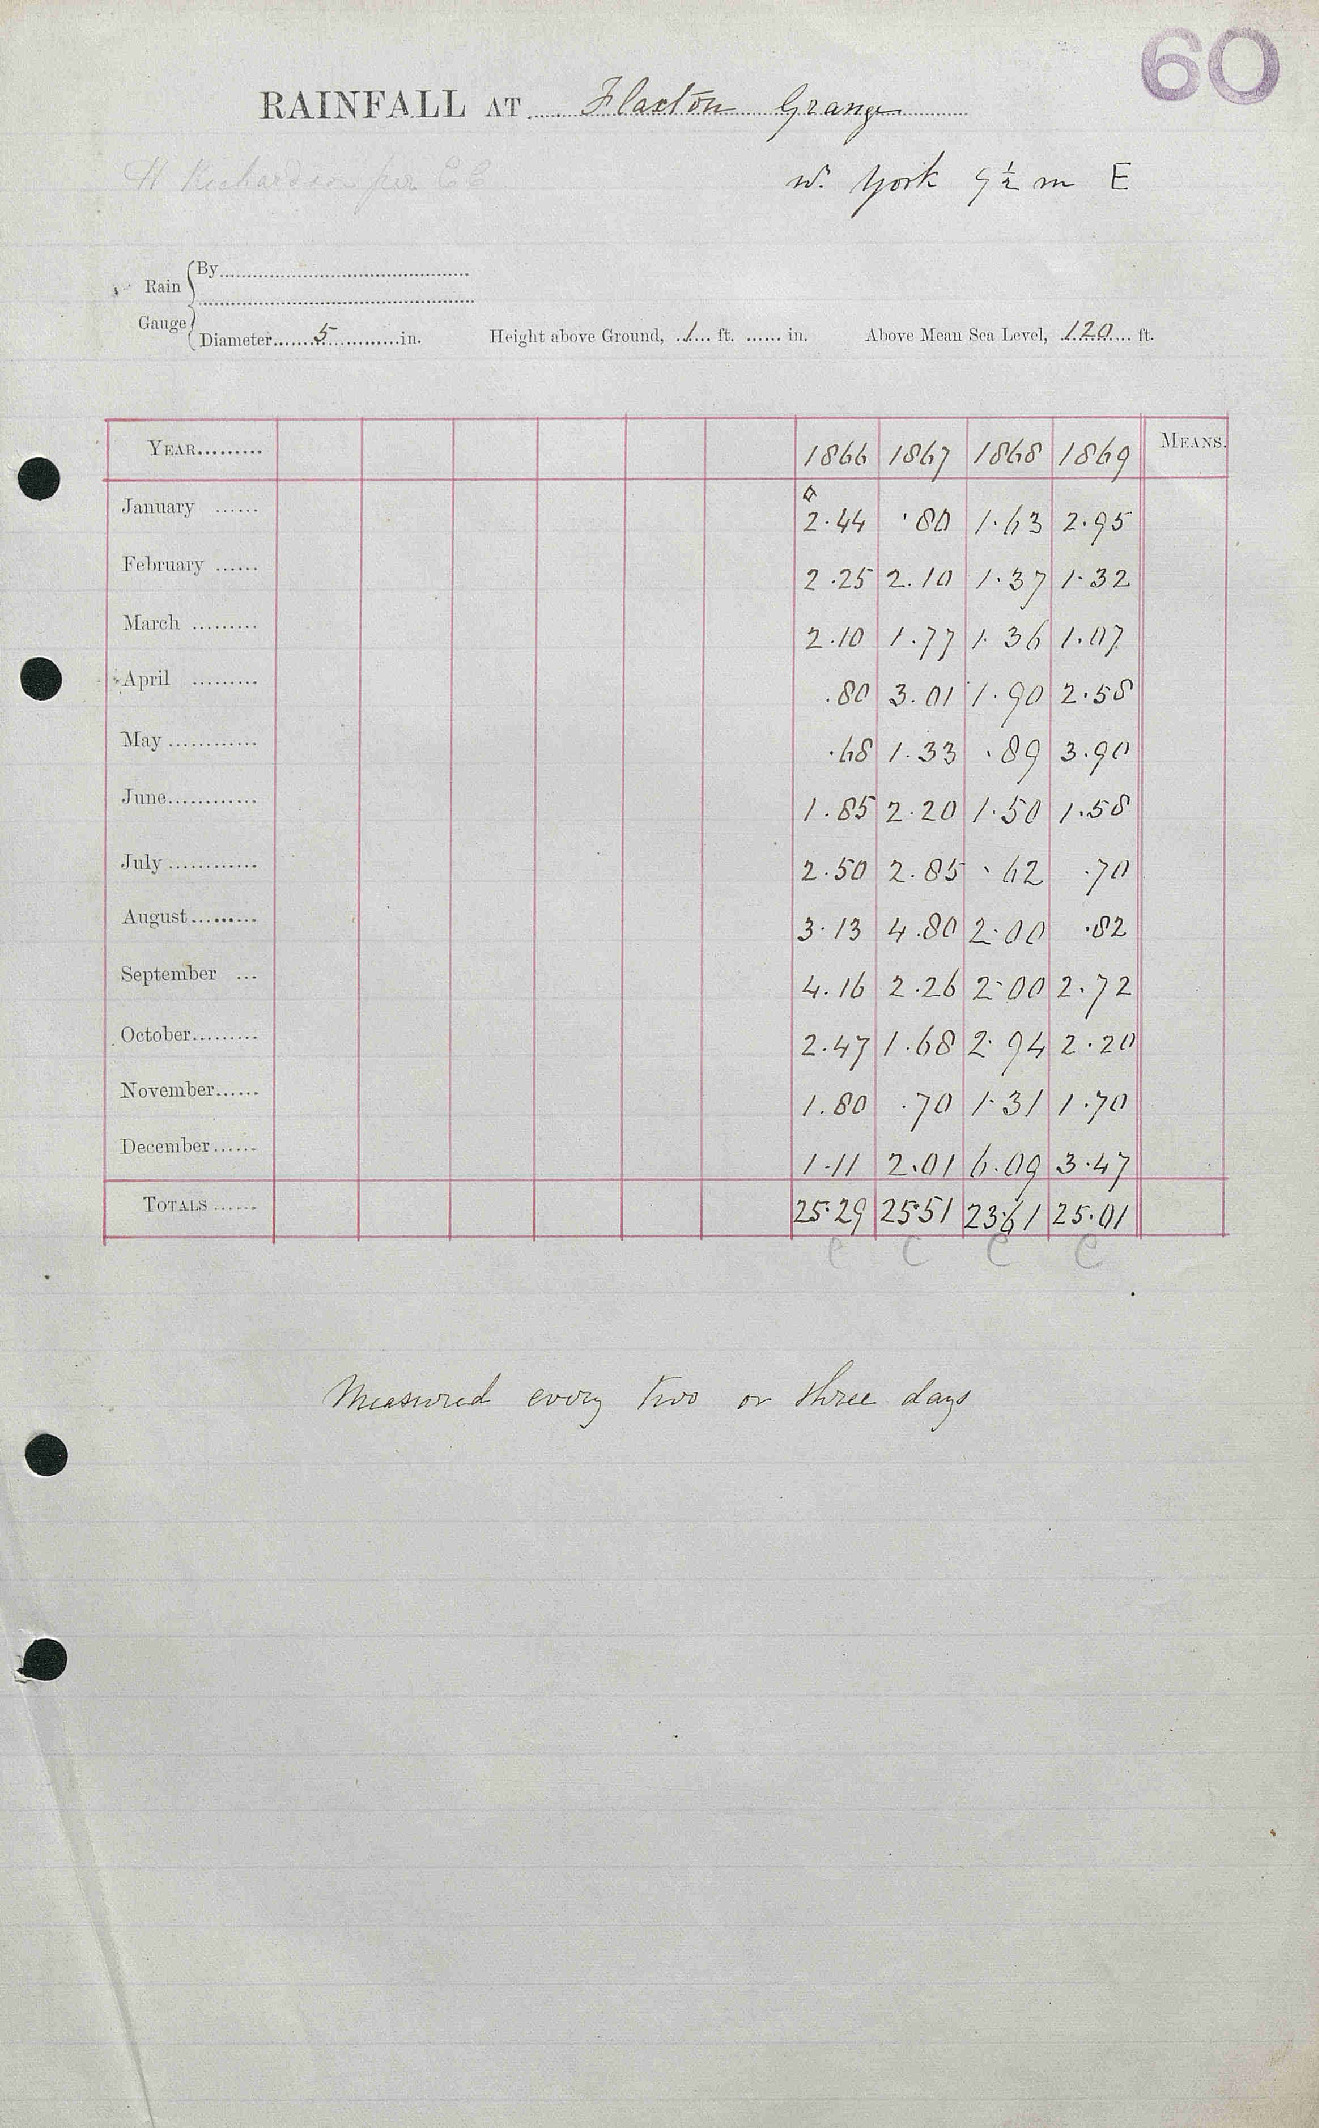 60
RAINFALL AT Flaxton Grange
H Richardson per CC
nr. York 9½ m E
Rain Gauge
By
Diameter 5 in. Height above Ground, 1 ft. in. Above Mean Sea Level, 120 ft.
YEAR 1866 1867 1868 1869 MEANS.
January 2.44 .80 1.63 2.95
February 2.25 2.10 1.37 1.32
March 2.10 1.77 1.36 1.07
April .80 3.01 1.90 2.58
May .68 1.33 .89 3.90
June 1.85 2.20 1.50 1.58
July 2.50 2.85 .62 .70
August 3.13 4.80 2.00 .82
September 4.16 2.26 2.00 2.72
October 2.47 1.68 2.94 2.20
November 1.80 .70 1.31 1.70
December 1.11 2.01 6.09 3.47
TOTALS 25.29 25.51 23.61 25.01
C C C C
Measured every two or three days